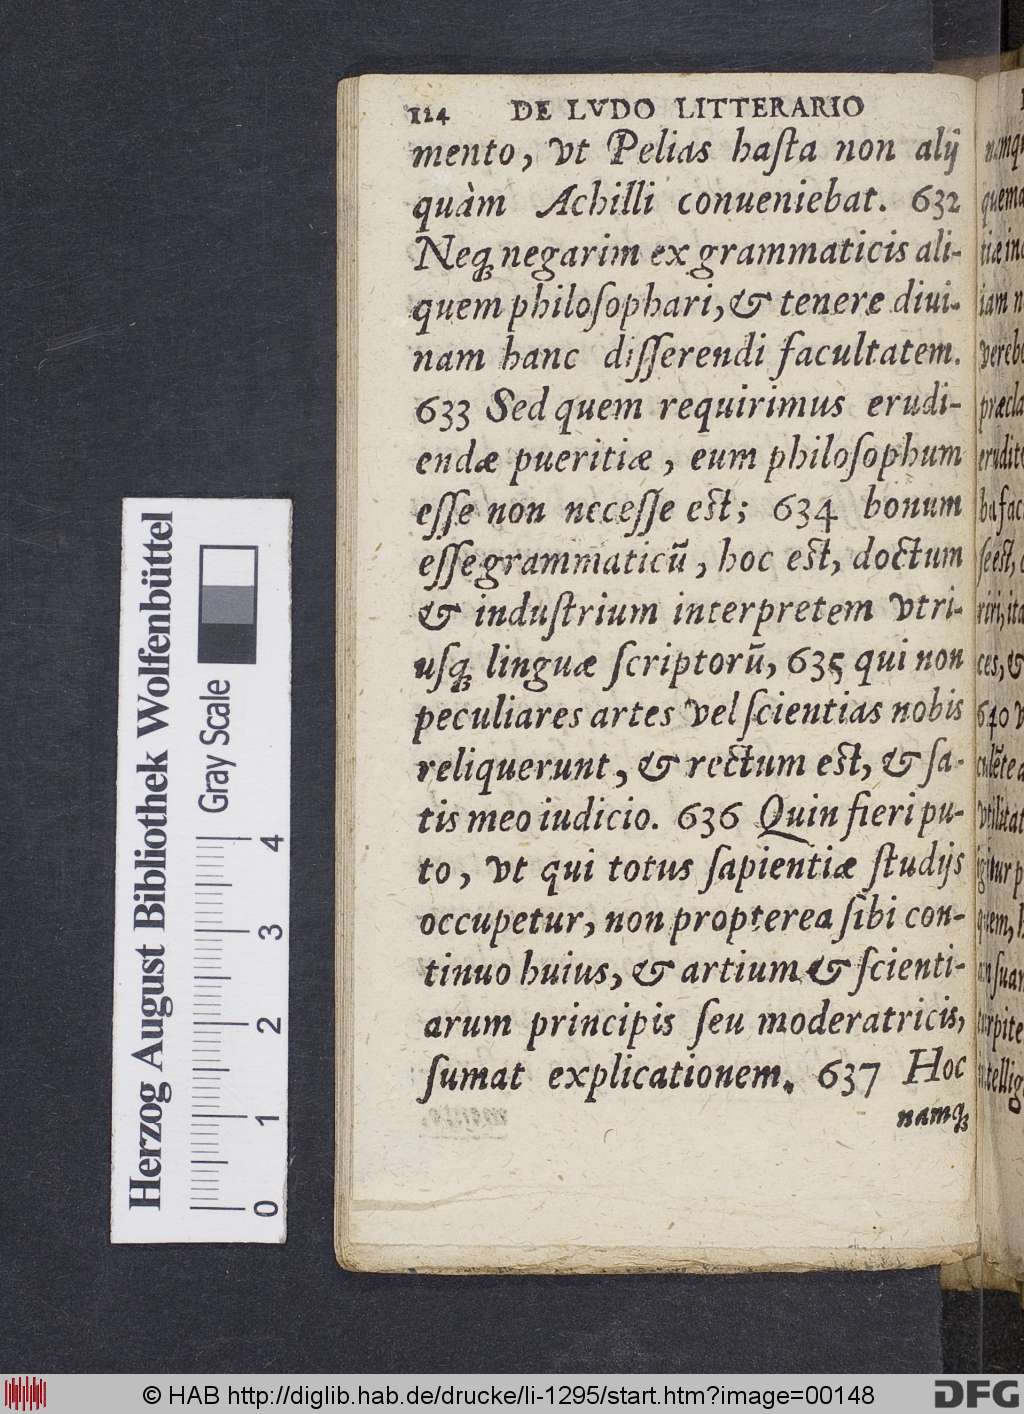 124 DE LVDO LITTERARIO
mento, vt Pelias hasta non alij
quàm Achilli conueniebat. 632
Neqꝫ negarim ex grammaticis ali-
quem philosophari, & tenere diui-
nam hanc disserendi facultatem.
633 Sed quem requirimus erudi-
endæ pueritiæ, eum philosophum
esse non necesse est; 634 bonum
esse grammaticū, hoc est, doctum
& industrium interpretem vtri-
usqꝫ linguæ scriptorū, 635 qui non
peculiares artes vel scientias nobis
reliquerunt, & rectum est, & sa-
tis meo iudicio. 636 Quin fieri pu-
to, vt qui totus sapientiæ studijs
occupetur, non propterea sibi con-
tinuo huius, & artium & scienti-
arum principis seu moderatricis,
sumat explicationem. 637 Hoc
namqꝫ
Herzog August Bibliothek Wolfenbüttel
Gray Scale
0 1 2 3 4
© HAB http://diglib.hab.de/drucke/li-1295/start.htm?image=00148
DFG